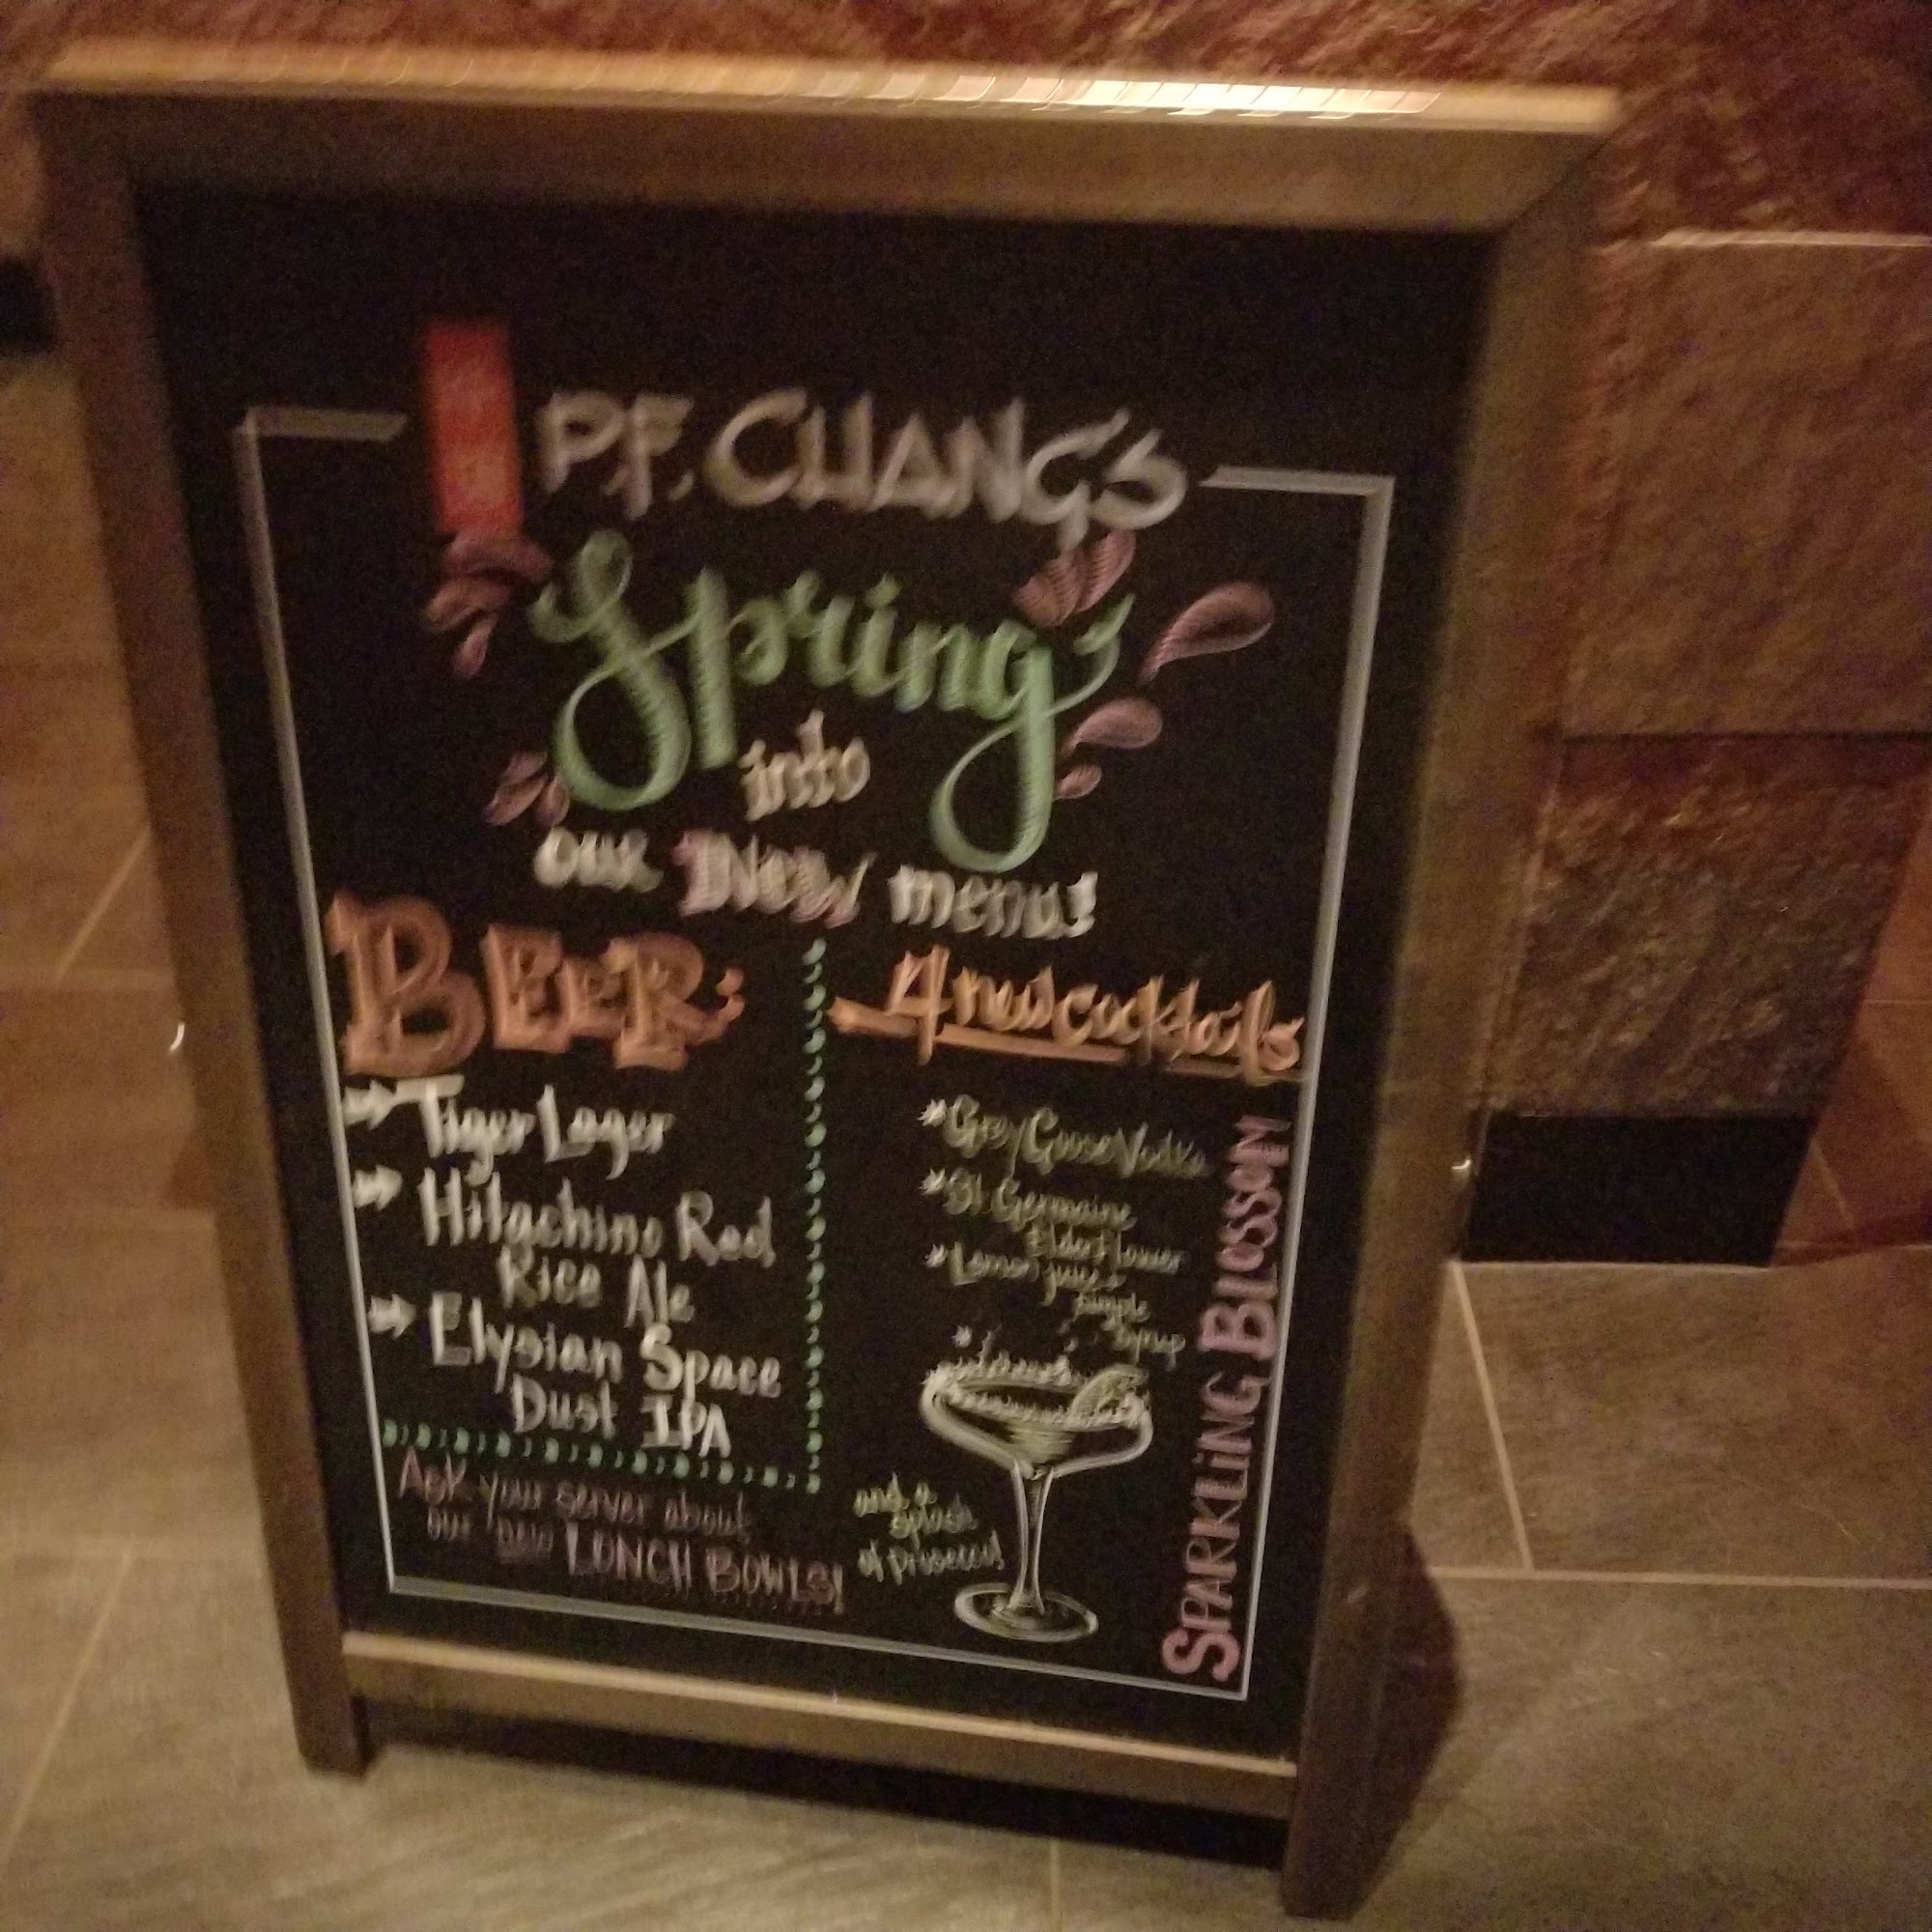 P.F. CHANG'S
Spring
into
our New menu!
BEER:
Tiger Lager
Hitachino Red
Rice Ale
Elysian Space
Dust IPA
Ask your server about
our new LUNCH BOWLS!
4 new cocktails
*Grey Goose Vodka
*St Germaine
Elderflower
*Lemon juice &
simple
syrup
and a
splash
of prosecco!
SPARKLING BLOSSOM